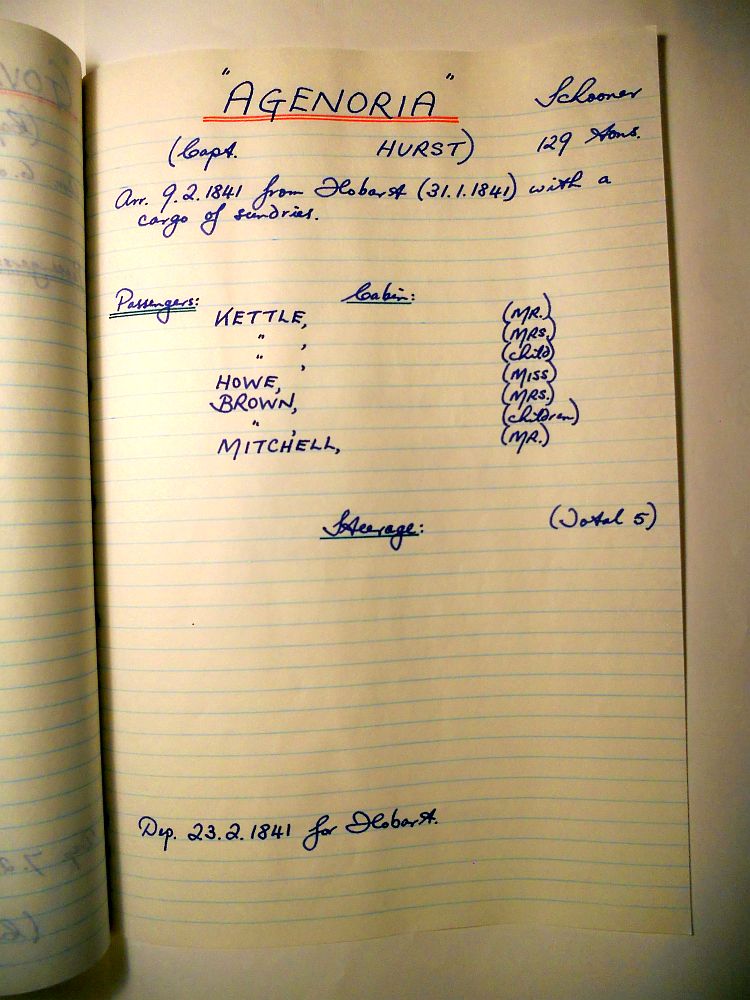 "AGENORIA" Schooner
(Capt. HURST) 129 tons.
Arr. 9.2.1841 from Hobart (31.1.1841) with a
cargo of sundries.
Passengers: Cabin:
KETTLE, (MR.)
" , (MRS.)
" , (child)
HOWE, (MISS)
BROWN, (MRS.)
" , (children)
MITCHELL, (MR.)
Steerage: (Total 5)
Dep. 23.2.1841 for Hobart.